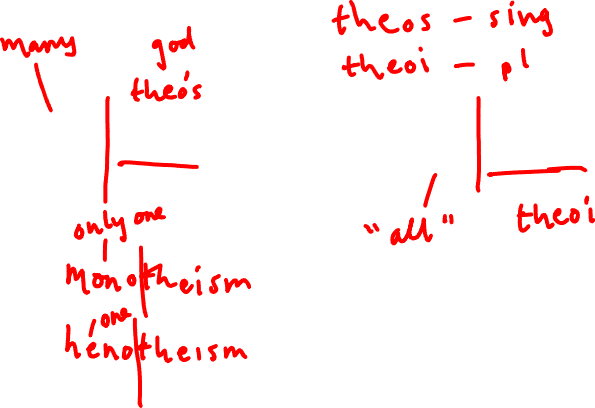 many god
theós
only one
monotheism
one
hénotheism
theos – sing
theoi – pl
"all" theoi